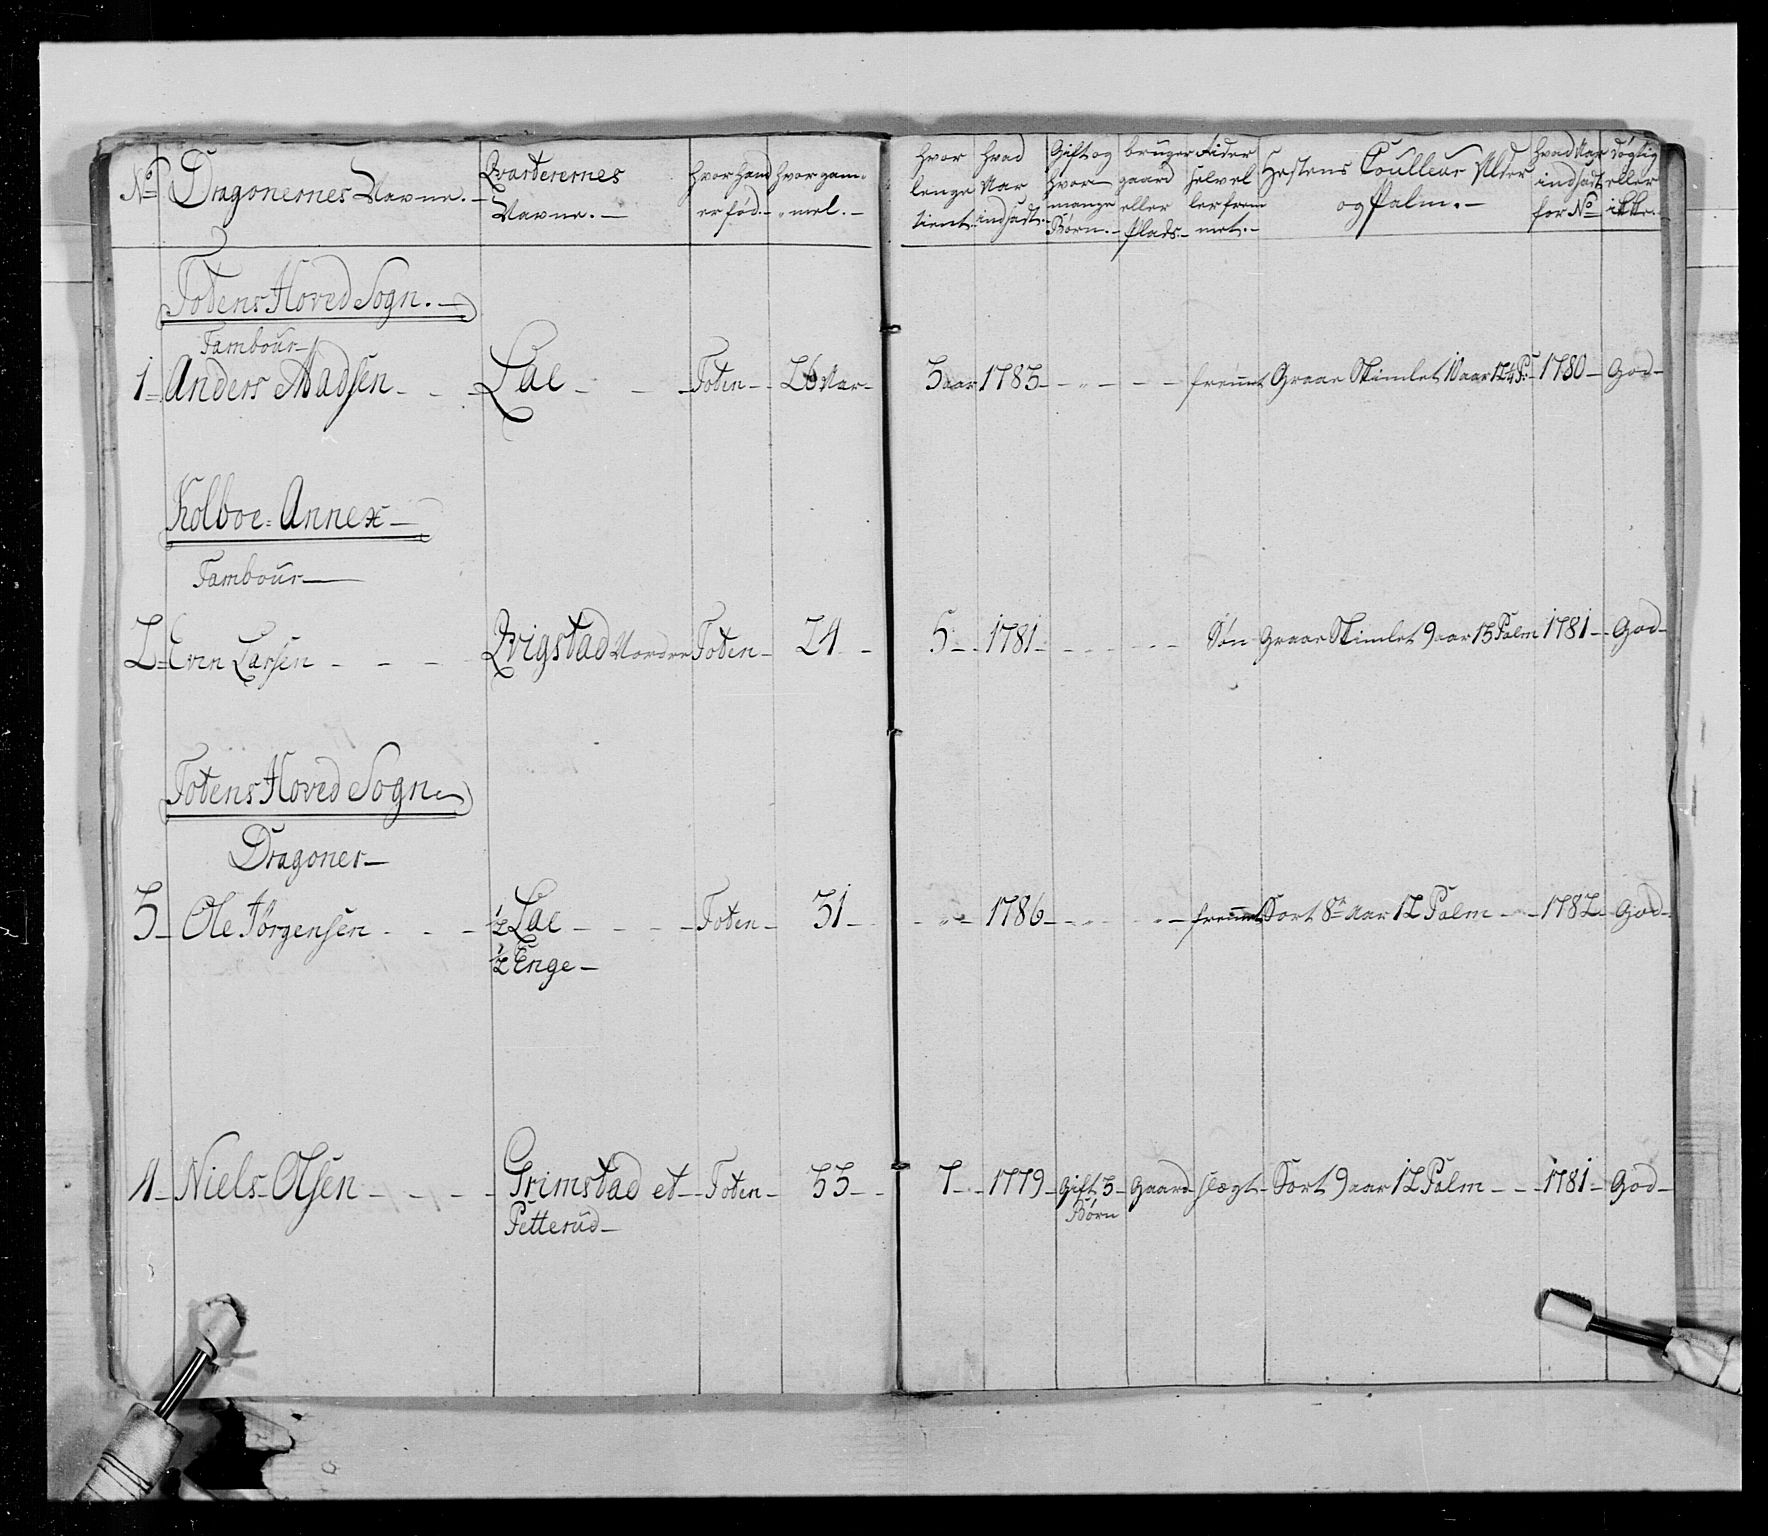 No Dragonernes Navne. Qvarterernes Navne. hvor hand er fød. hvor gammel.
hvor lenge tient. hvad Aar indsadt. Gift og hvor mange Børn. bruger gaard eller Plads. Hestens Coulleur Alter og Palm. hvad Aar indsadt for No døgtig eller ikke.
Totens Hoved Sogn.
Tambour
1 Anders Madsen Lae Toten 26 Aar 3 aar 1783 fremmet Graae Skimlet 10 aar 12 4 P: 1780 God
Kolboe Annex
Tambour
2 Even Larsen Qvigstad Nordre Toten 24 5 1781 Søn Graae Skimlet 9 aar 13 Palm 1781 God
Totens Hoved Sogn
Dragoner
3 Ole Jörgensen ½ Lae Toten 31 1786 fremmet Sort 8te Aar 12 Palm 1782 God
½ Enge
4 Niels Olsen Grimstad et Toten 33 7 1779 Gift 3 Gaard slegt Sort 9 aar 12 Palm 1781 God
Petterud Børn